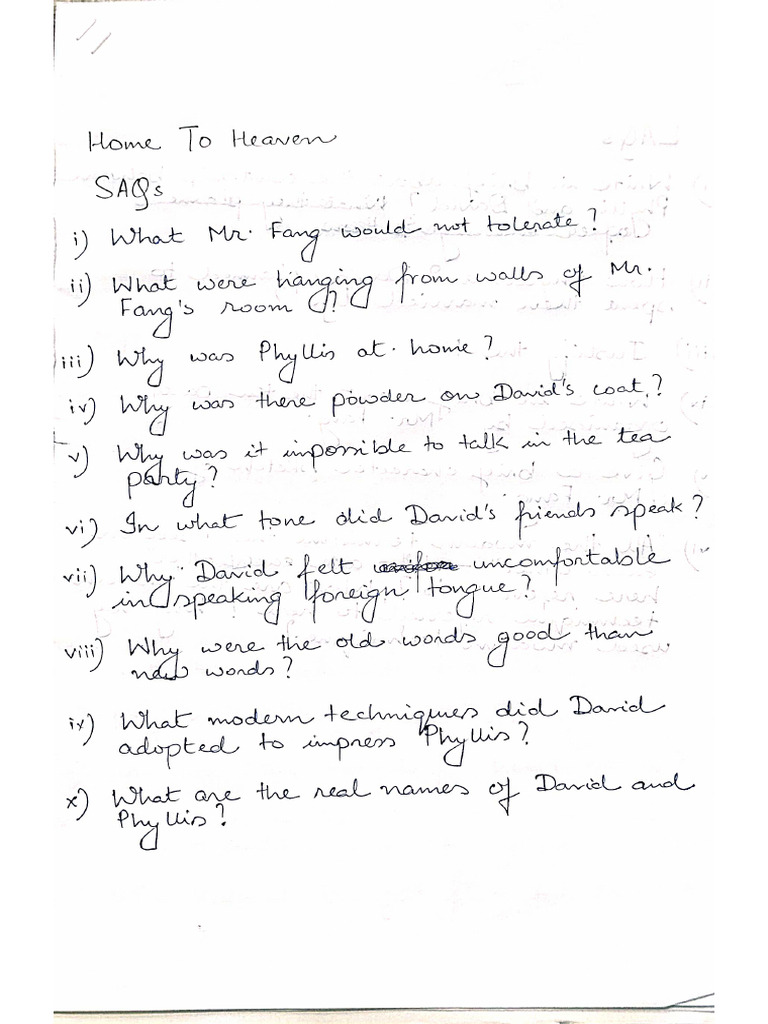 Home To Heaven
SAQs
i) What Mr. Fang would not tolerate?
ii) What were hanging from walls of Mr.
Fang's room?
iii) Why was Phyllis at home?
iv) Why was there powder on David's coat?
v) Why was it impossible to talk in the tea
party?
vi) In what tone did David's friends speak?
vii) Why David felt uncomfortable
in speaking foreign tongue?
viii) Why were the old words good than
new words?
ix) What modern techniques did David
adopted to impress Phyllis?
x) What are the real names of David and
Phyllis?